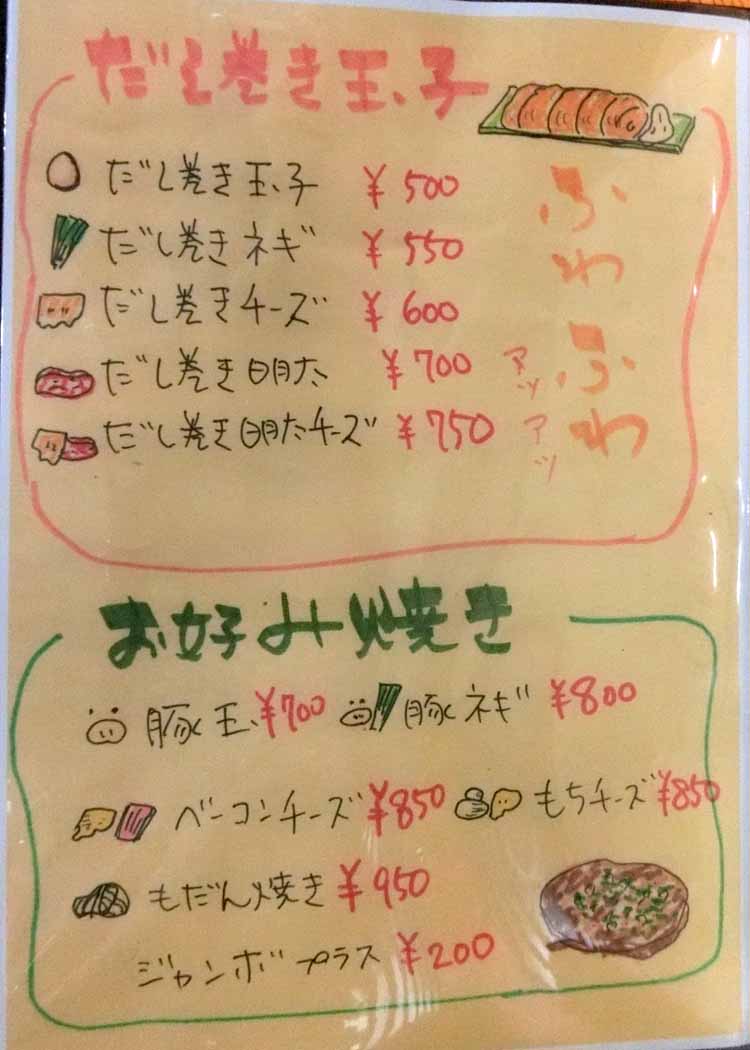 だし巻き玉子
だし巻き玉子 ¥500
だし巻きネギ ¥550
だし巻きチーズ ¥600
だし巻き明太 ¥700
だし巻き明太チーズ ¥750
ふわふわ
アツアツ
お好み焼き
豚玉 ¥700 豚ネギ ¥800
ベーコンチーズ ¥850 もちチーズ ¥850
もだん焼き ¥950
ジャンボプラス ¥200